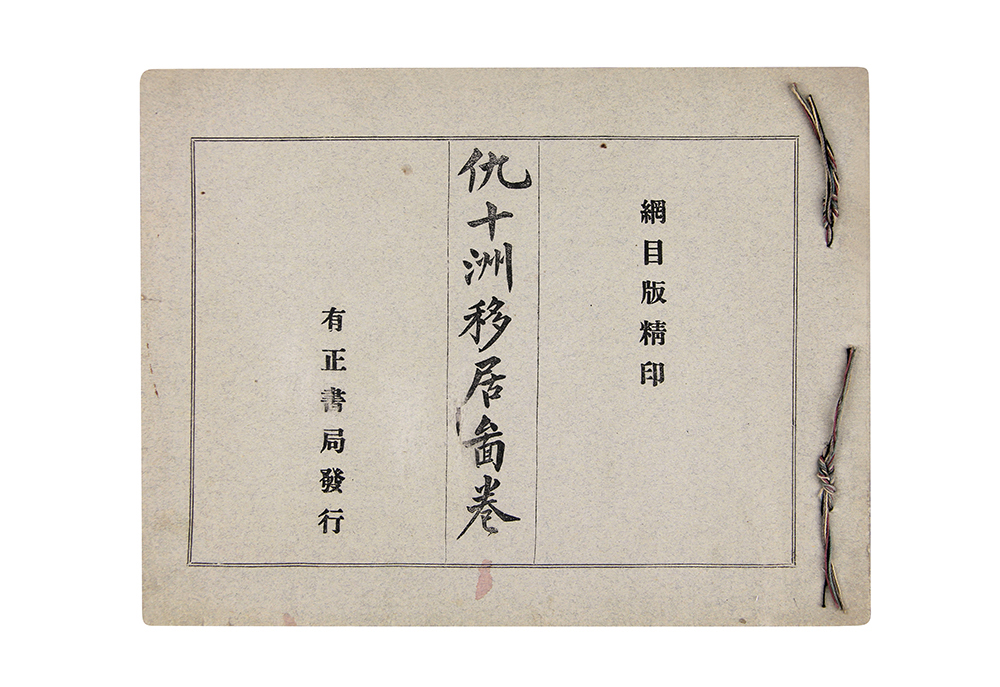 網目版精印
仇十洲移居啚卷
有正書局發行